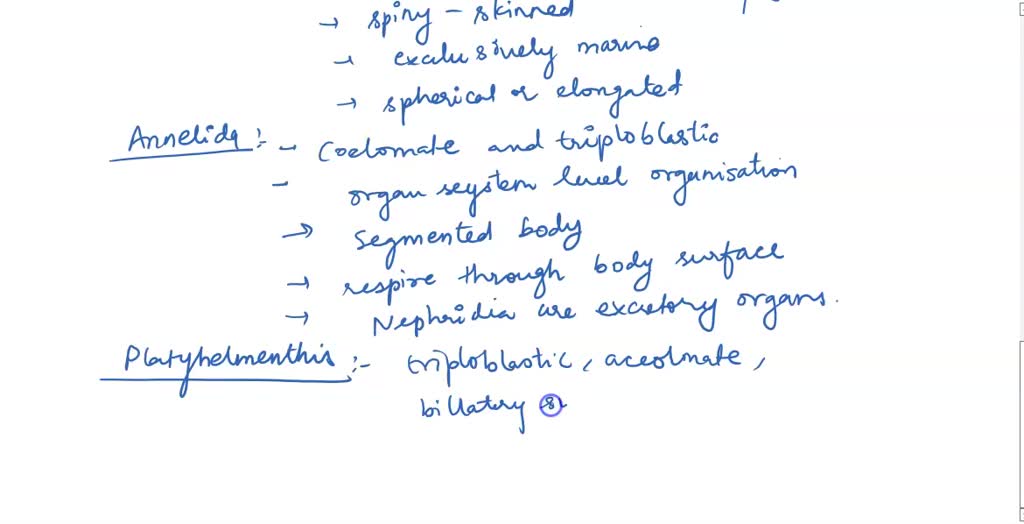 → spiny - skinned
→ exclusively marine
→ spherical or elongated
Annelida :- - Coelomate and triploblastic
- organ seystem level organisation
→ Segmented body
→ respire through body surface
→ Nephridia are excretory organs.
Platyhelmenthis :- triploblastic, aceolmate,
billatery s